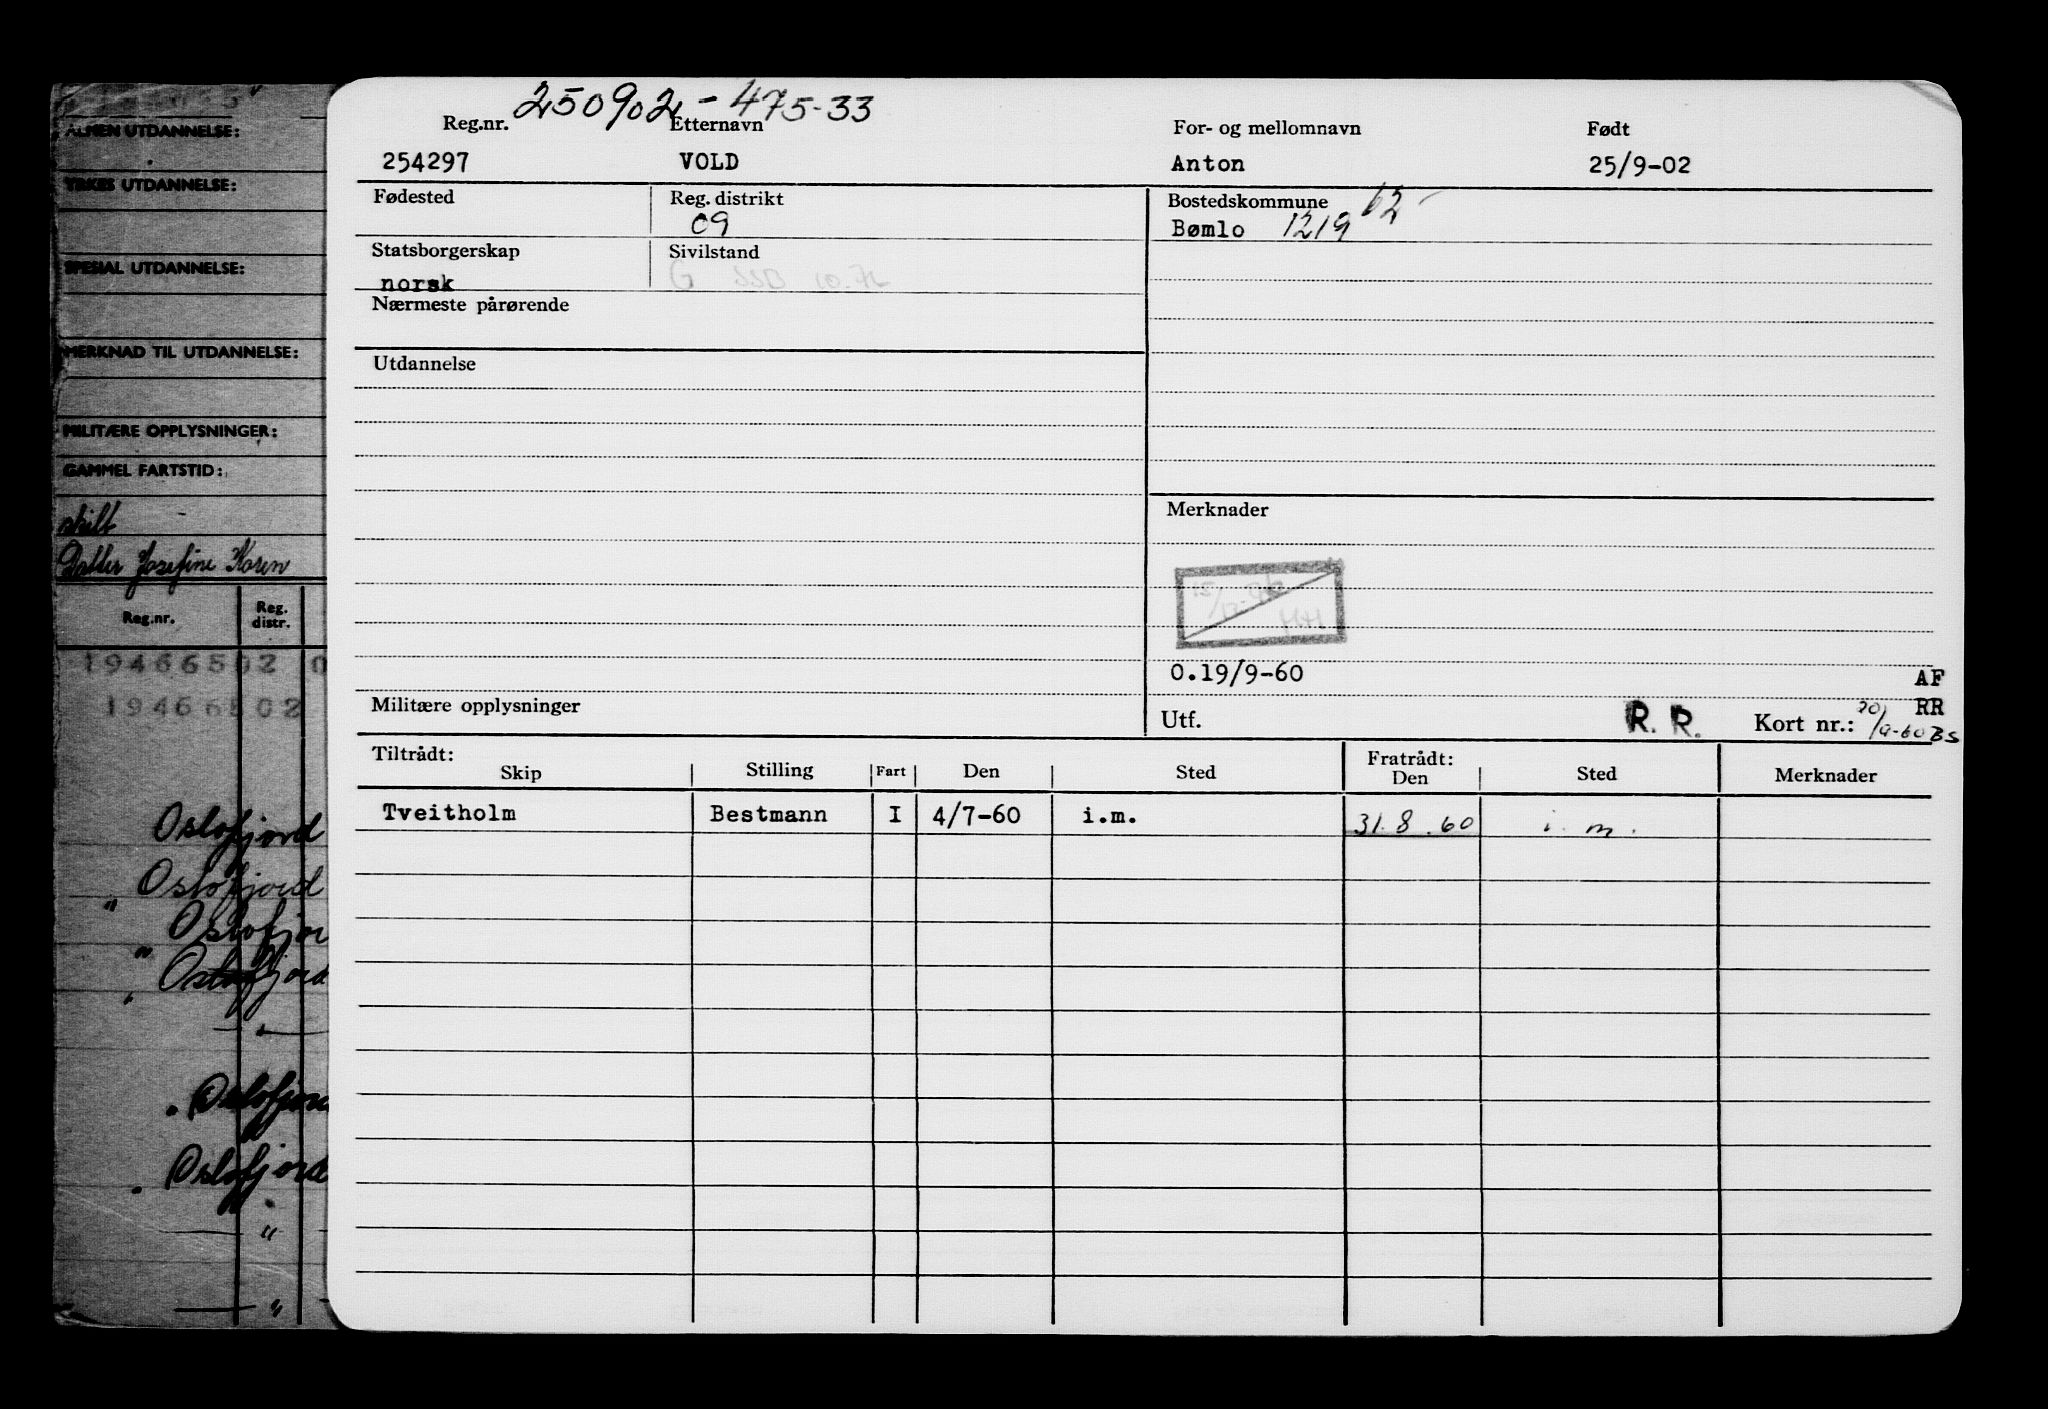 ALMEN UTDANNELSE:
YRKES UTDANNELSE:
SPESIAL UTDANNELSE:
MERKNAD TIL UTDANNELSE:
MILITÆRE OPPLYSNINGER:
GAMMEL FARTSTID:
skilt
Datter Josefine Koren
Reg.nr. Reg. distr.
19466502 0
19466502
Oslofjord
" Oslofjord
" Oslofjor
" Oslofjord
"
" Oslofjord
" Oslofjord
"
"
250902 - 475-33
Reg.nr. Etternavn For- og mellomnavn Født
254297 VOLD Anton 25/9-02
Fødested Reg. distrikt Bostedskommune
09 Bømlo 1219 62
Statsborgerskap Sivilstand
norsk G SSB 10.72
Nærmeste pårørende
Utdannelse
Merknader
0.19/9-60
AF
RR
Militære opplysninger Utf. R. R. Kort nr.: 20/9-60 BS
Tiltrådt: Fratrådt:
Skip Stilling Fart Den Sted Den Sted Merknader
Tveitholm Bestmann I 4/7-60 i.m. 31.8.60 i.m.